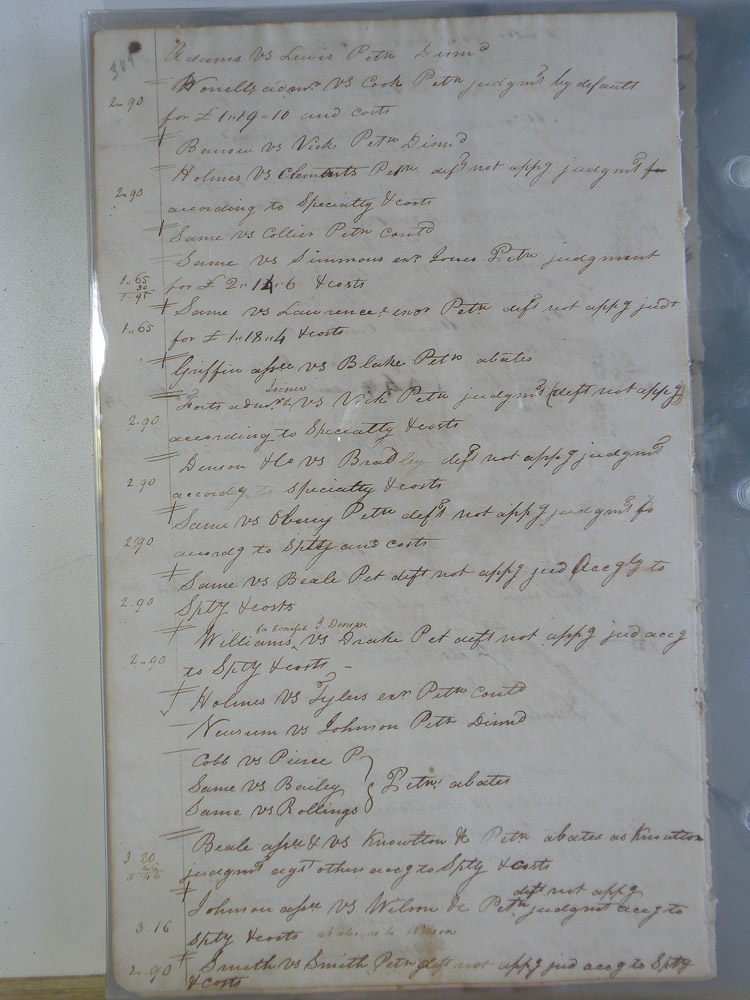 Adams vs Lewis Petn Dismd
Worrells admr vs Cook Petn judgmt by default
2..90 for £ 1..19..10 and costs
Barrow vs Vick Petn Dismd
Holmes vs Clements Petn deft not appg judgmt
2..90 according to Specialty & costs
Same vs Collier Petn contd
Same vs Simmons exr Jones Petn judgment
1..65 for £ 2..12..6 & costs
Same vs Lawrence's exor Petn deft not appg judt
1..65 for £ 1..18..4 & costs
Griffin assee vs Blake Petn abates
Forts admr vs Vick Petn judgmt (deft not appg)
2.90 according to Specialty & costs
Denson & Co vs Bradley deft not appg judgmt
2.90 accordg to specialty & costs
Same vs Oberry Petn deft not appg judgmt fo
2.90 acordg to Splty and costs
Same vs Beale Pet deft not appg jud accgly to
2..90 Splty & costs
for benefit J. Denson
Williams vs Drake Pet deft not appg jud accg
2..90 to Splty & costs
Holmes vs Tylers exr Petn contd
Newsum vs Johnson Petn Dismd
Cobb vs Pierce P
Same vs Bailey Petns abates
Same vs Rollings
Beale assee & vs Knowlton &c Petn abates as Knowlton
3.20 judgmt agst others accg to Splty & costs
deft not appg
Johnson assee vs Wilson &c Petn judgmt accg to
3.16 Splty & costs abates as to Wilson
2..90 Smith vs Smith Petn deft not appg jud accg to Splty
& costs